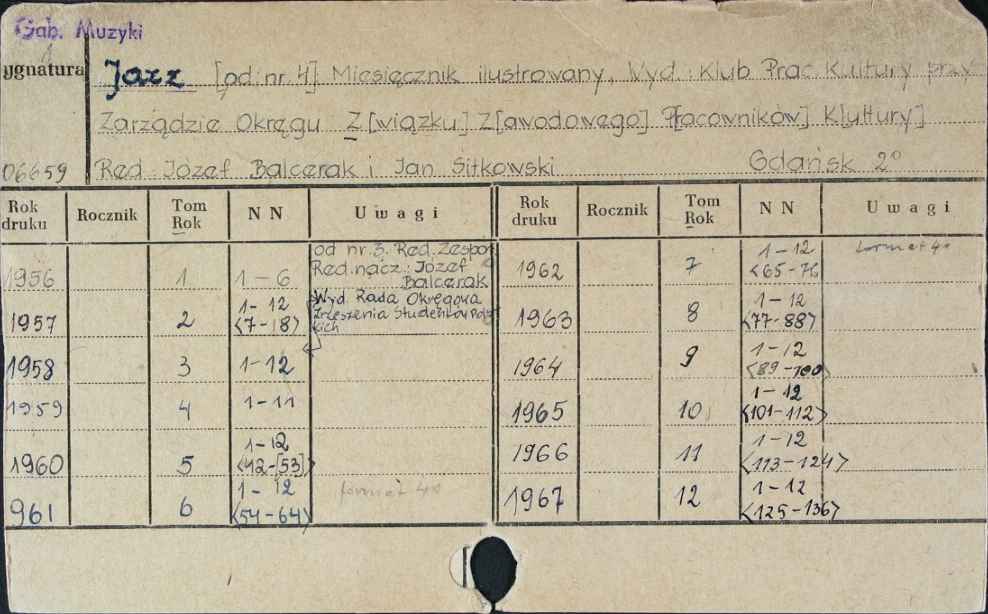 Gab. Muzyki
ygnatura Jazz [od nr. 4] Miesięcznik ilustrowany, Wyd.: Klub Prac. Kultury przy
Zarządzie Okręgu Z[wiązku] Z[awodowego] P[racowników] K[ultury]
06659 Red. Józef Balcerak i Jan Sitkowski Gdańsk 2°
Rok druku Rocznik Tom Rok NN Uwagi Rok druku Rocznik Tom Rok NN Uwagi
1956 1 1-6 od nr 3. Red. Zespoł
Red. nacz.: Józef
Balcerak
1957 2 1-12
<7-18> Wyd. Rada Okręgowa
Zrzeszenia Studentów Pols
kich
1958 3 1-12
1959 4 1-11
1960 5 1-12
<42-[53]>
961 6 1-12
<54-64> format 4o
1962 7 1-12
<65-76 format 4o
1963 8 1-12
<77-88>
1964 9 1-12
<89-100>
1965 10 1-12
<101-112>
1966 11 1-12
<113-124>
1967 12 1-12
<125-136>